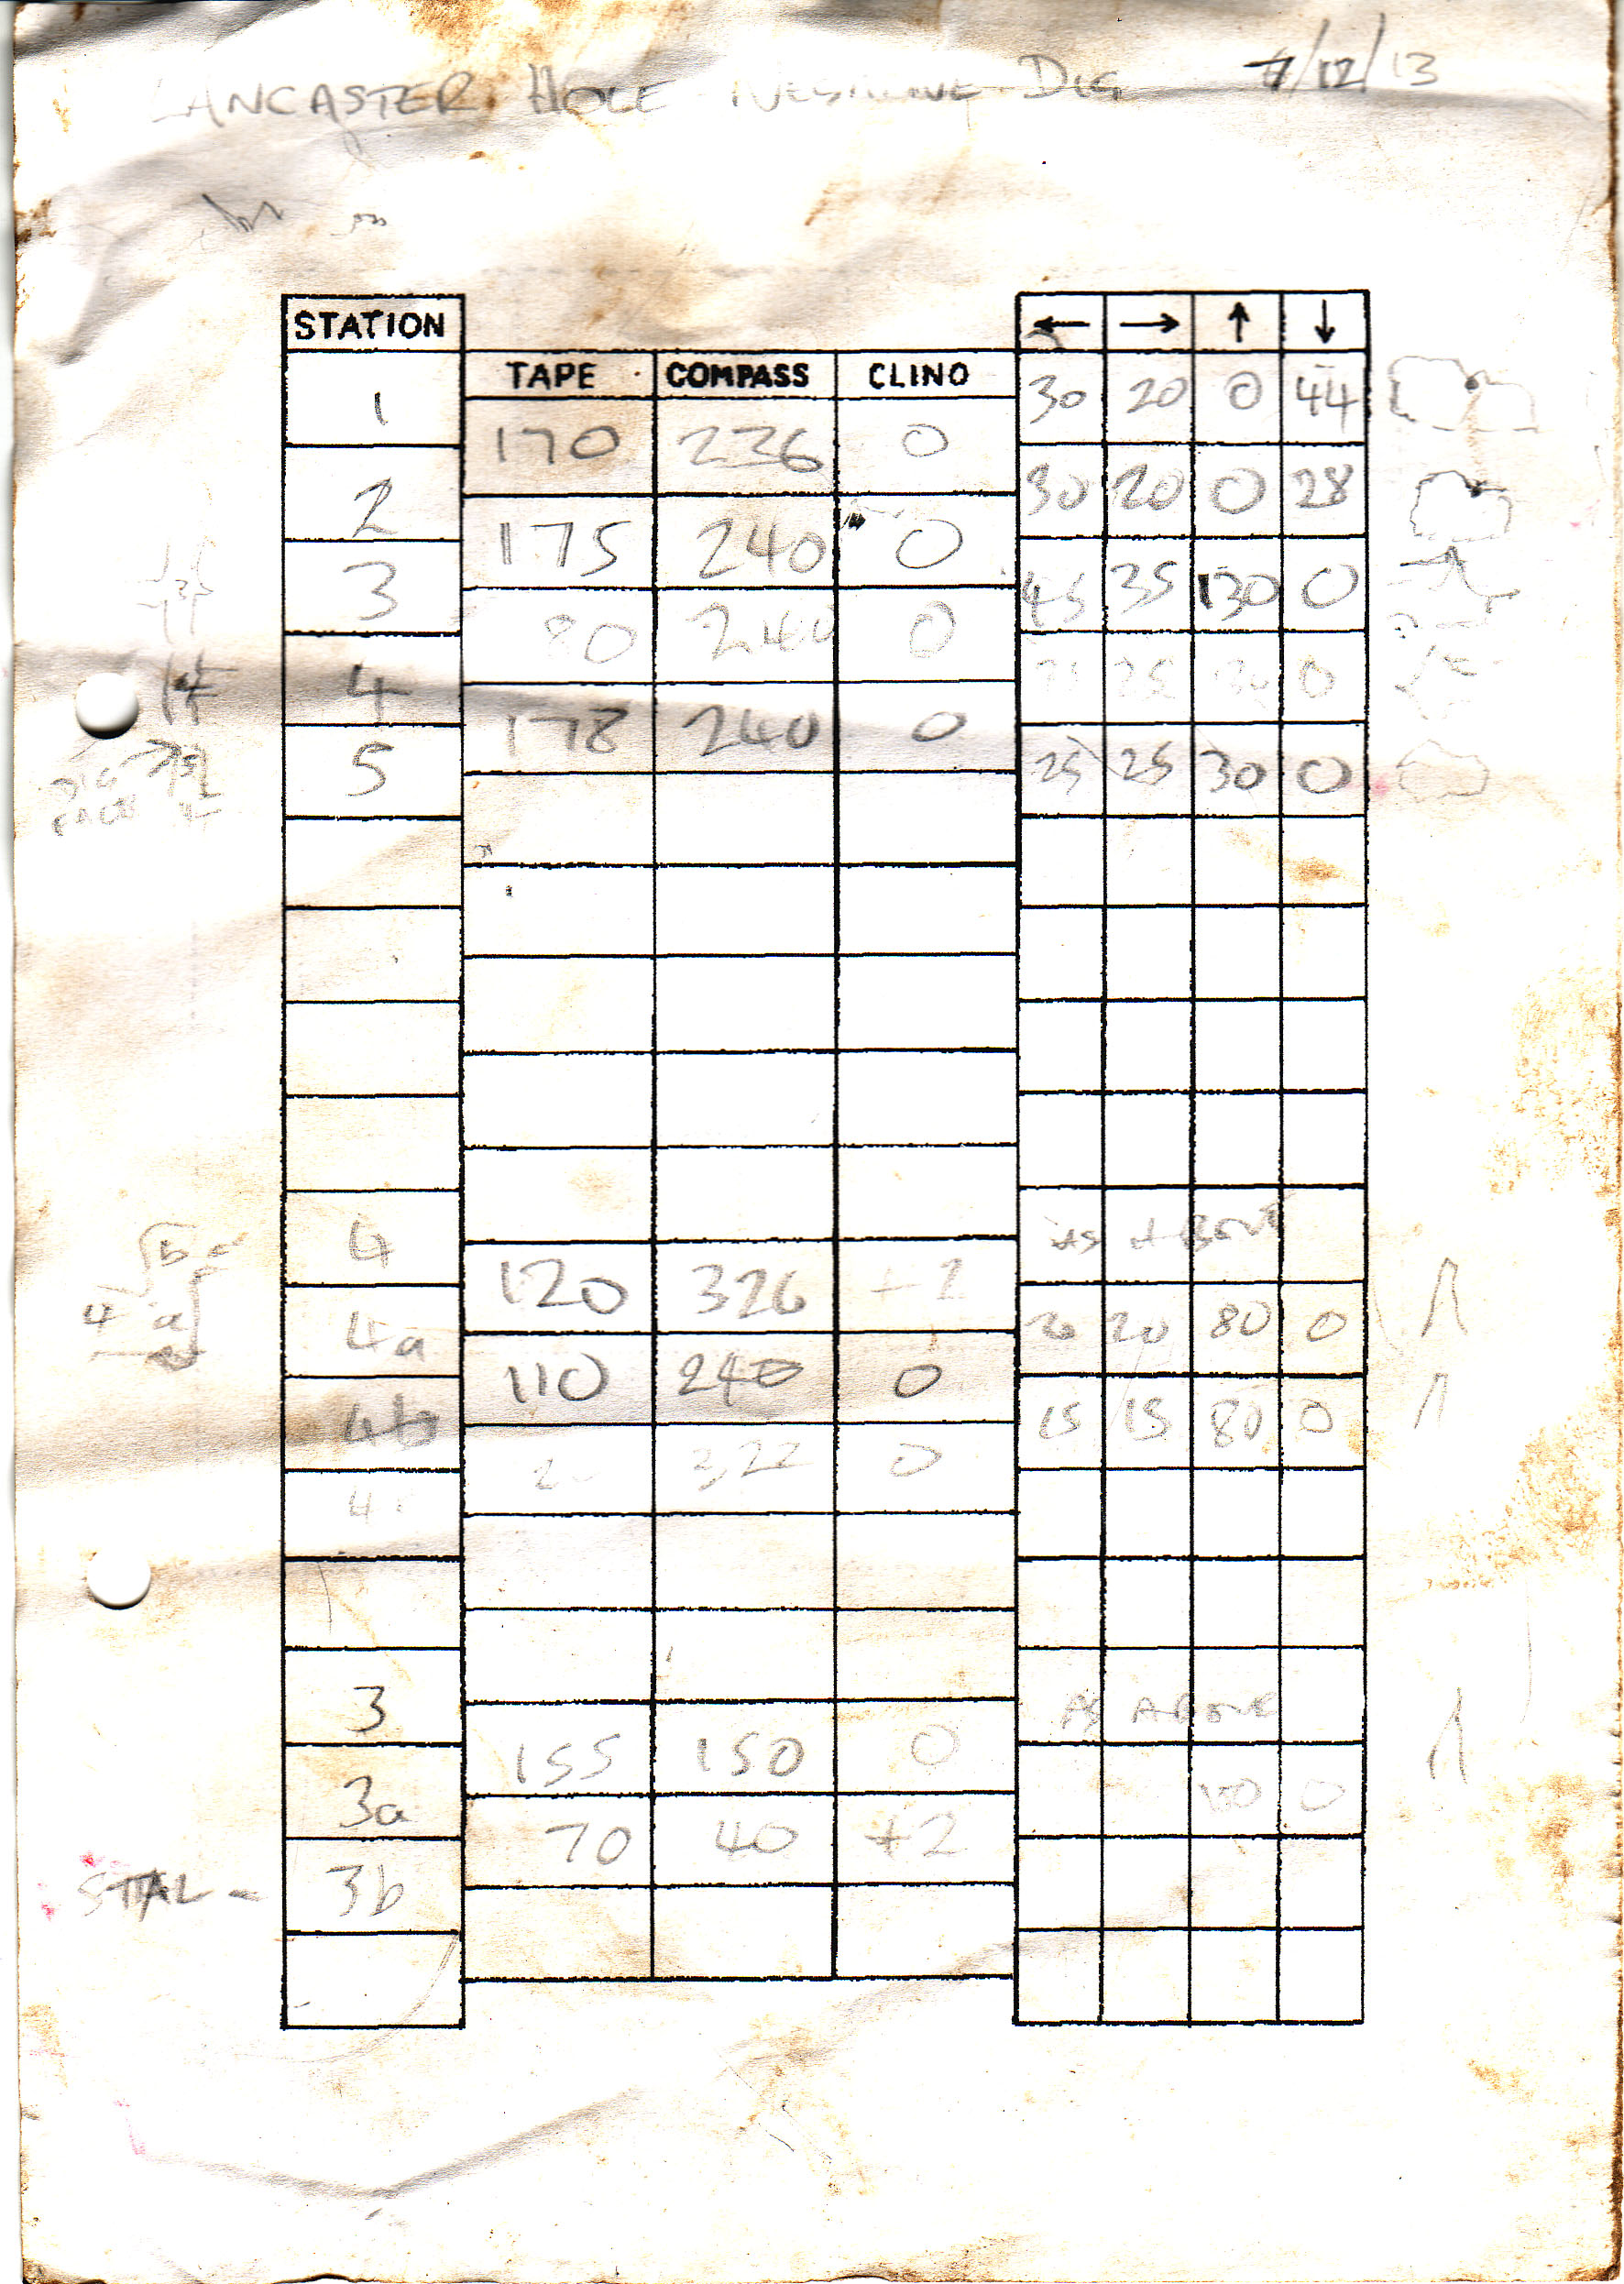 LANCASTER HOLE DIG 7/12/13
STATION ← → ↑ ↓
TAPE COMPASS CLINO
1 30 20 0 44
170 236 0
2 30 20 0 28
175 240 0
3 45 35 130 0
80 240 0
4 25 0
178 240 0
5 25 25 30 0
DIG
FACE
4 AS ABOVE
b
120 326 +2
4 a
4a 20 20 80 0
110 240 0
4b 15 15 80 0
322 0
3 AS ABOVE
155 150 0
3a 100 0
70 40 +2
STAL - 3b